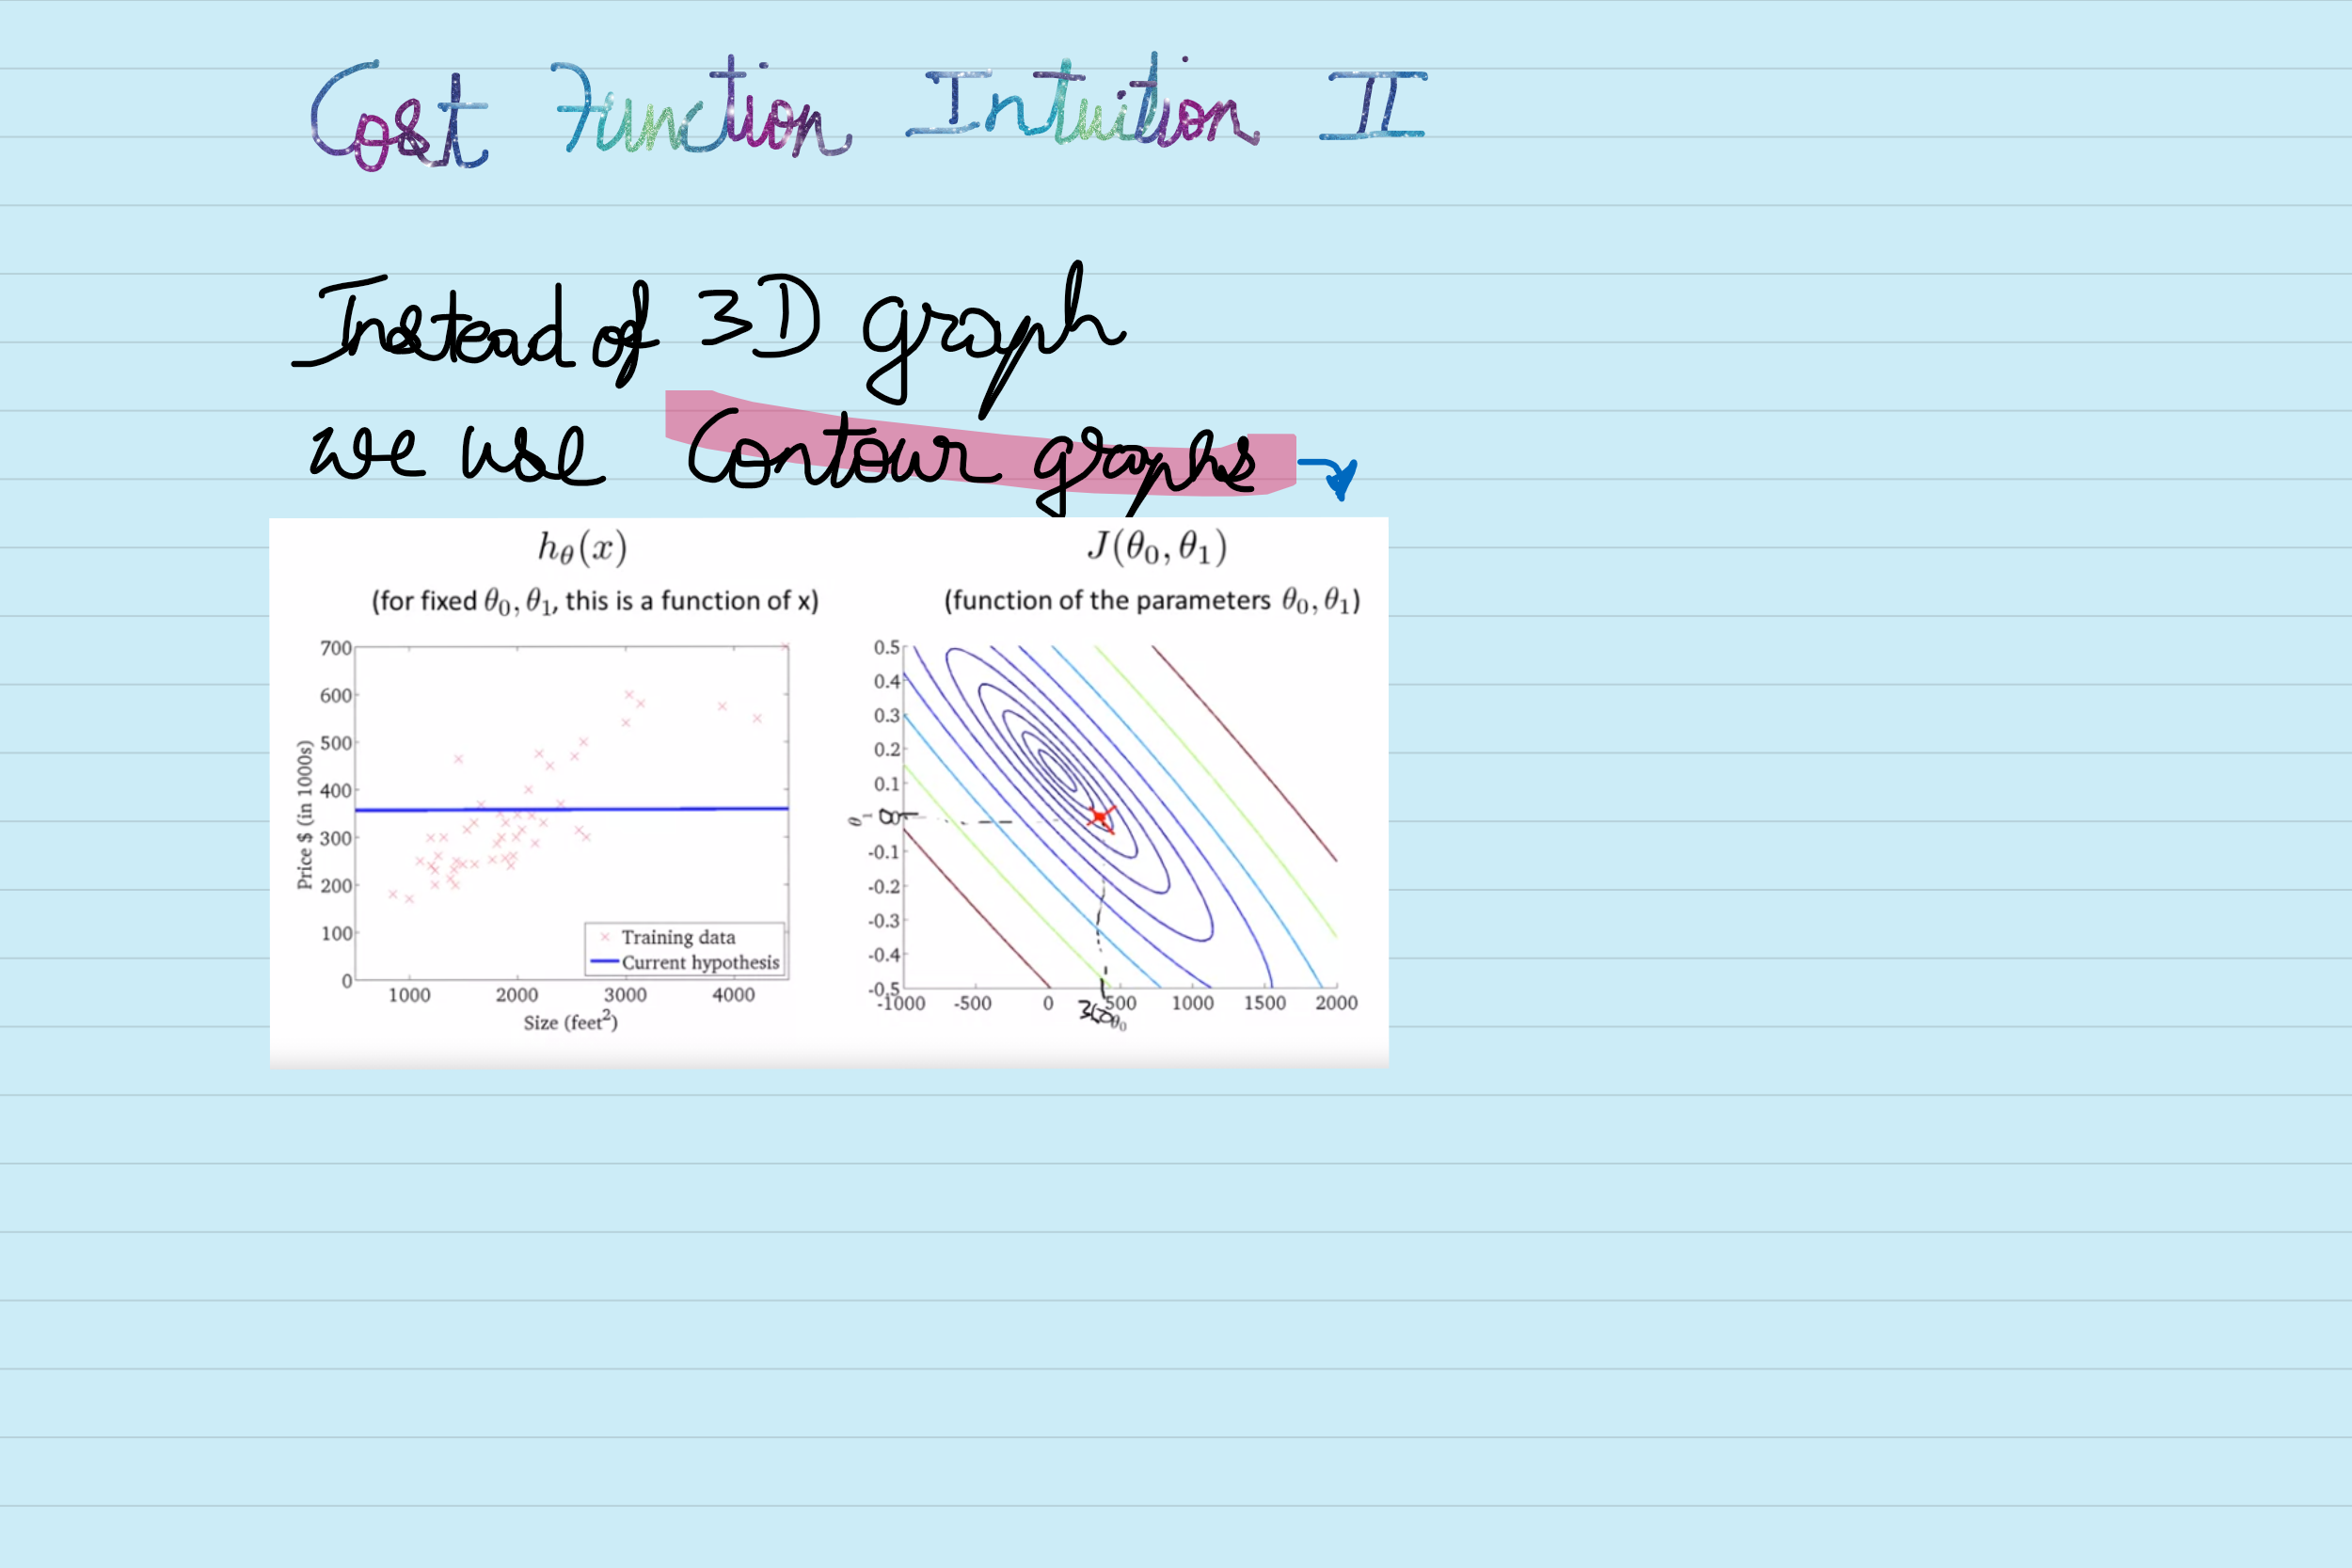 Cost Function Intuition II
Instead of 3D graph
we use Contour graphs
hθ(x)
(for fixed θ0, θ1, this is a function of x)
700
600
500
400
300
200
100
0
Price $ (in 1000s)
1000 2000 3000 4000
Size (feet²)
Training data
Current hypothesis
J(θ0, θ1)
(function of the parameters θ0, θ1)
0.5
0.4
0.3
0.2
0.1
0
-0.1
-0.2
-0.3
-0.4
-0.5
θ1
-1000 -500 0 500 1000 1500 2000
θ0